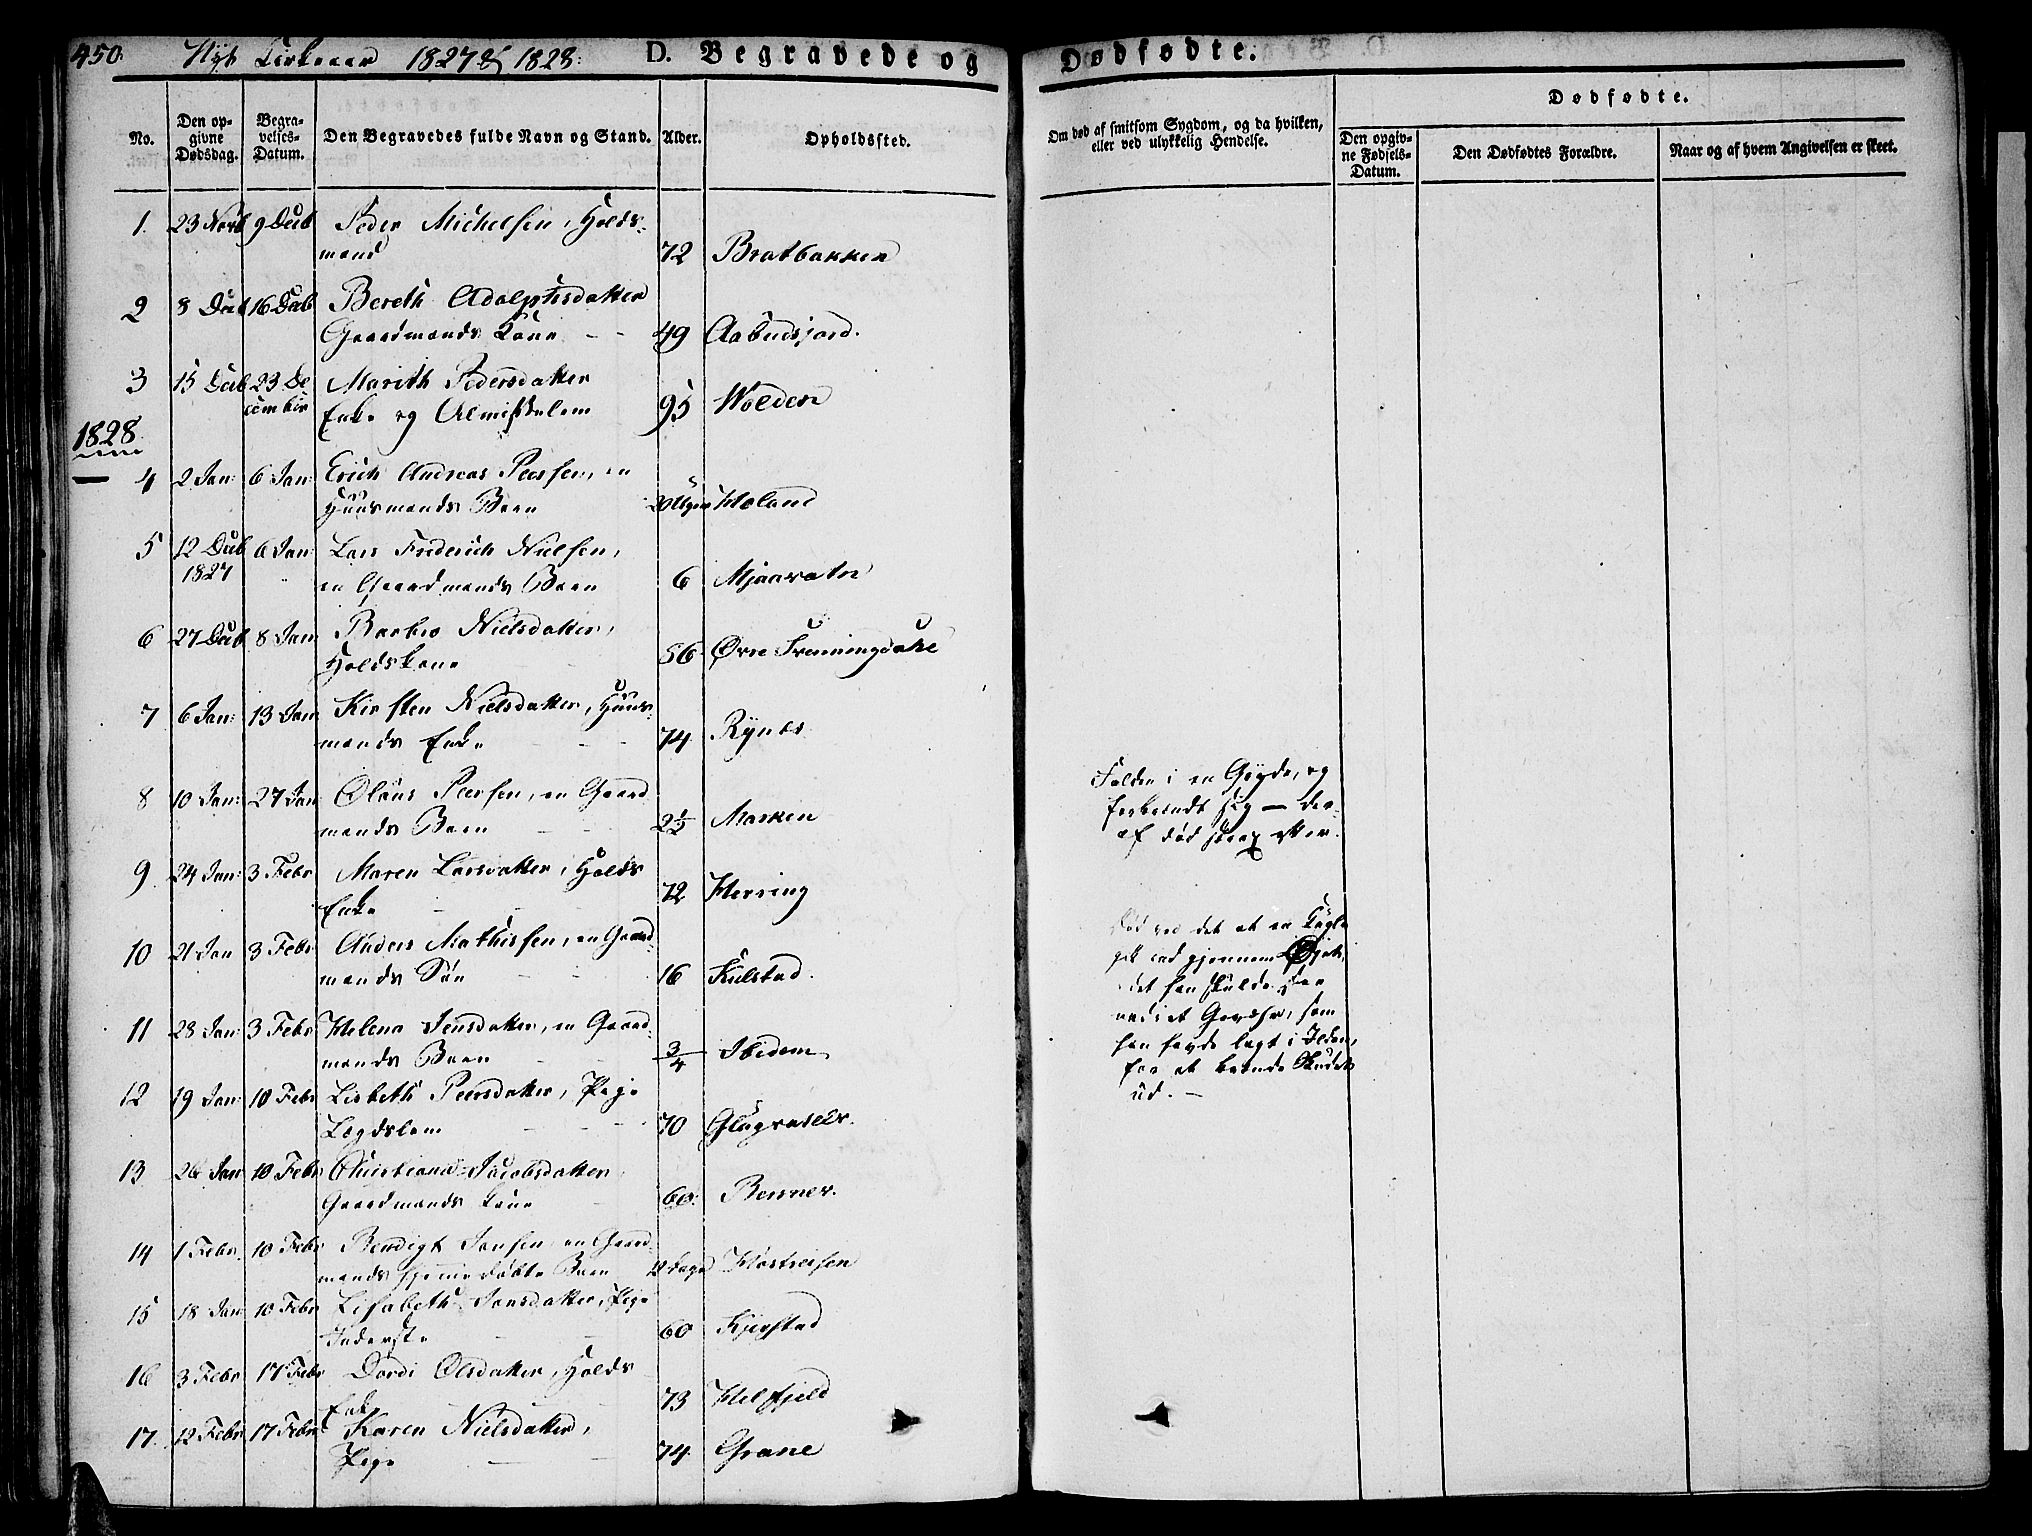 450. Nyt Kirkeaar 1827 & 1828: D. Begravede og Dødfødte.
No. Den opgivne Dødsdag. Begravelses-Datum. Den Begravedes fulde Navn og Stand. Alder. Opholdssted. Om død af smitsom Sygdom, og da hvilken, eller ved ulykkelig Hendelse. Dødfødte. Den opgivne Fødsels-Datum. Den Dødfødtes Forældre. Naar og af hvem Angivelsen er skeet.
1. 23 Novb 9 Decb Peder Michelsen, Holds-
mand 72 Bratbakken
2 8 Decb 16 Decb Bereth Adolphsdatter
Gaardmands Kone - - 49 Aabudsjord.
3 15 Decb 23 De
cember Marith Pedersdatter
Enke og Almisselem 95 Wolden
1828
4 2 Jan: 6 Jan: Erich Andreas Peersen, en
Huusmands Barn 20 Uger Holand
5 12 Decb 1827 6 Jan: Lars Friderich Nielsen,
en Gaardmands Barn 6 Mjaavatn
6 27 Decb 8 Jan Barbro Nielsdatter,
Holdskone 56 Øvre Svenningdahl
7 6 Jan: 13 Jan Kirsten Nielsdatter, Huus-
mands Enke - - 74 Rynes
8 10 Jan: 27 Jan Olaus Peersen, en Gaard
mands Barn - - 2½ Marken
Falden i en Gryde, og
forbrændt sig — der-
af død strax efter.
9 24 Jan: 3 Febr Maren Larsdatter, Holds
Enke - - 72 Herring
10 21 Jan 3 Febr Anders Mathissen, en Gaard
mands Søn - - 16 Kulstad.
Død ved det at en Kugle
gik ind gjennem Øjet,
det han skulde see
ned i et Gevæhr, som
han havde lagt i Ilden,
for at brænde Skudet
ud. —
11 28 Jan: 3 Febr Helena Jensdatter, en Gaard
mands Barn - - 3/4 Ibidem
12 19 Jan: 10 Febr Lisbeth Peersdatter, Pige
Lægdslem - - 70
13 26 Jan 10 Febr Christiana Jacobsdatter
Gaardmands Kone - 60.
14 1 Febr. 10 Febr Bendigt Jonsen, en Gaard-
mands hjemmedøbte Barn 12 Dage
15 18 Jan 10 Febr Lisabeth Jonsdatter, Pige
Inderste - - 60 Kjerstad
16 3 Febr 17 Febr Dordi Olsdatter, Holds
Enke - - 73 Helfjeld
17. 12 Febr 17 Febr Karen Nielsdatter,
Pige - - 74. Grane